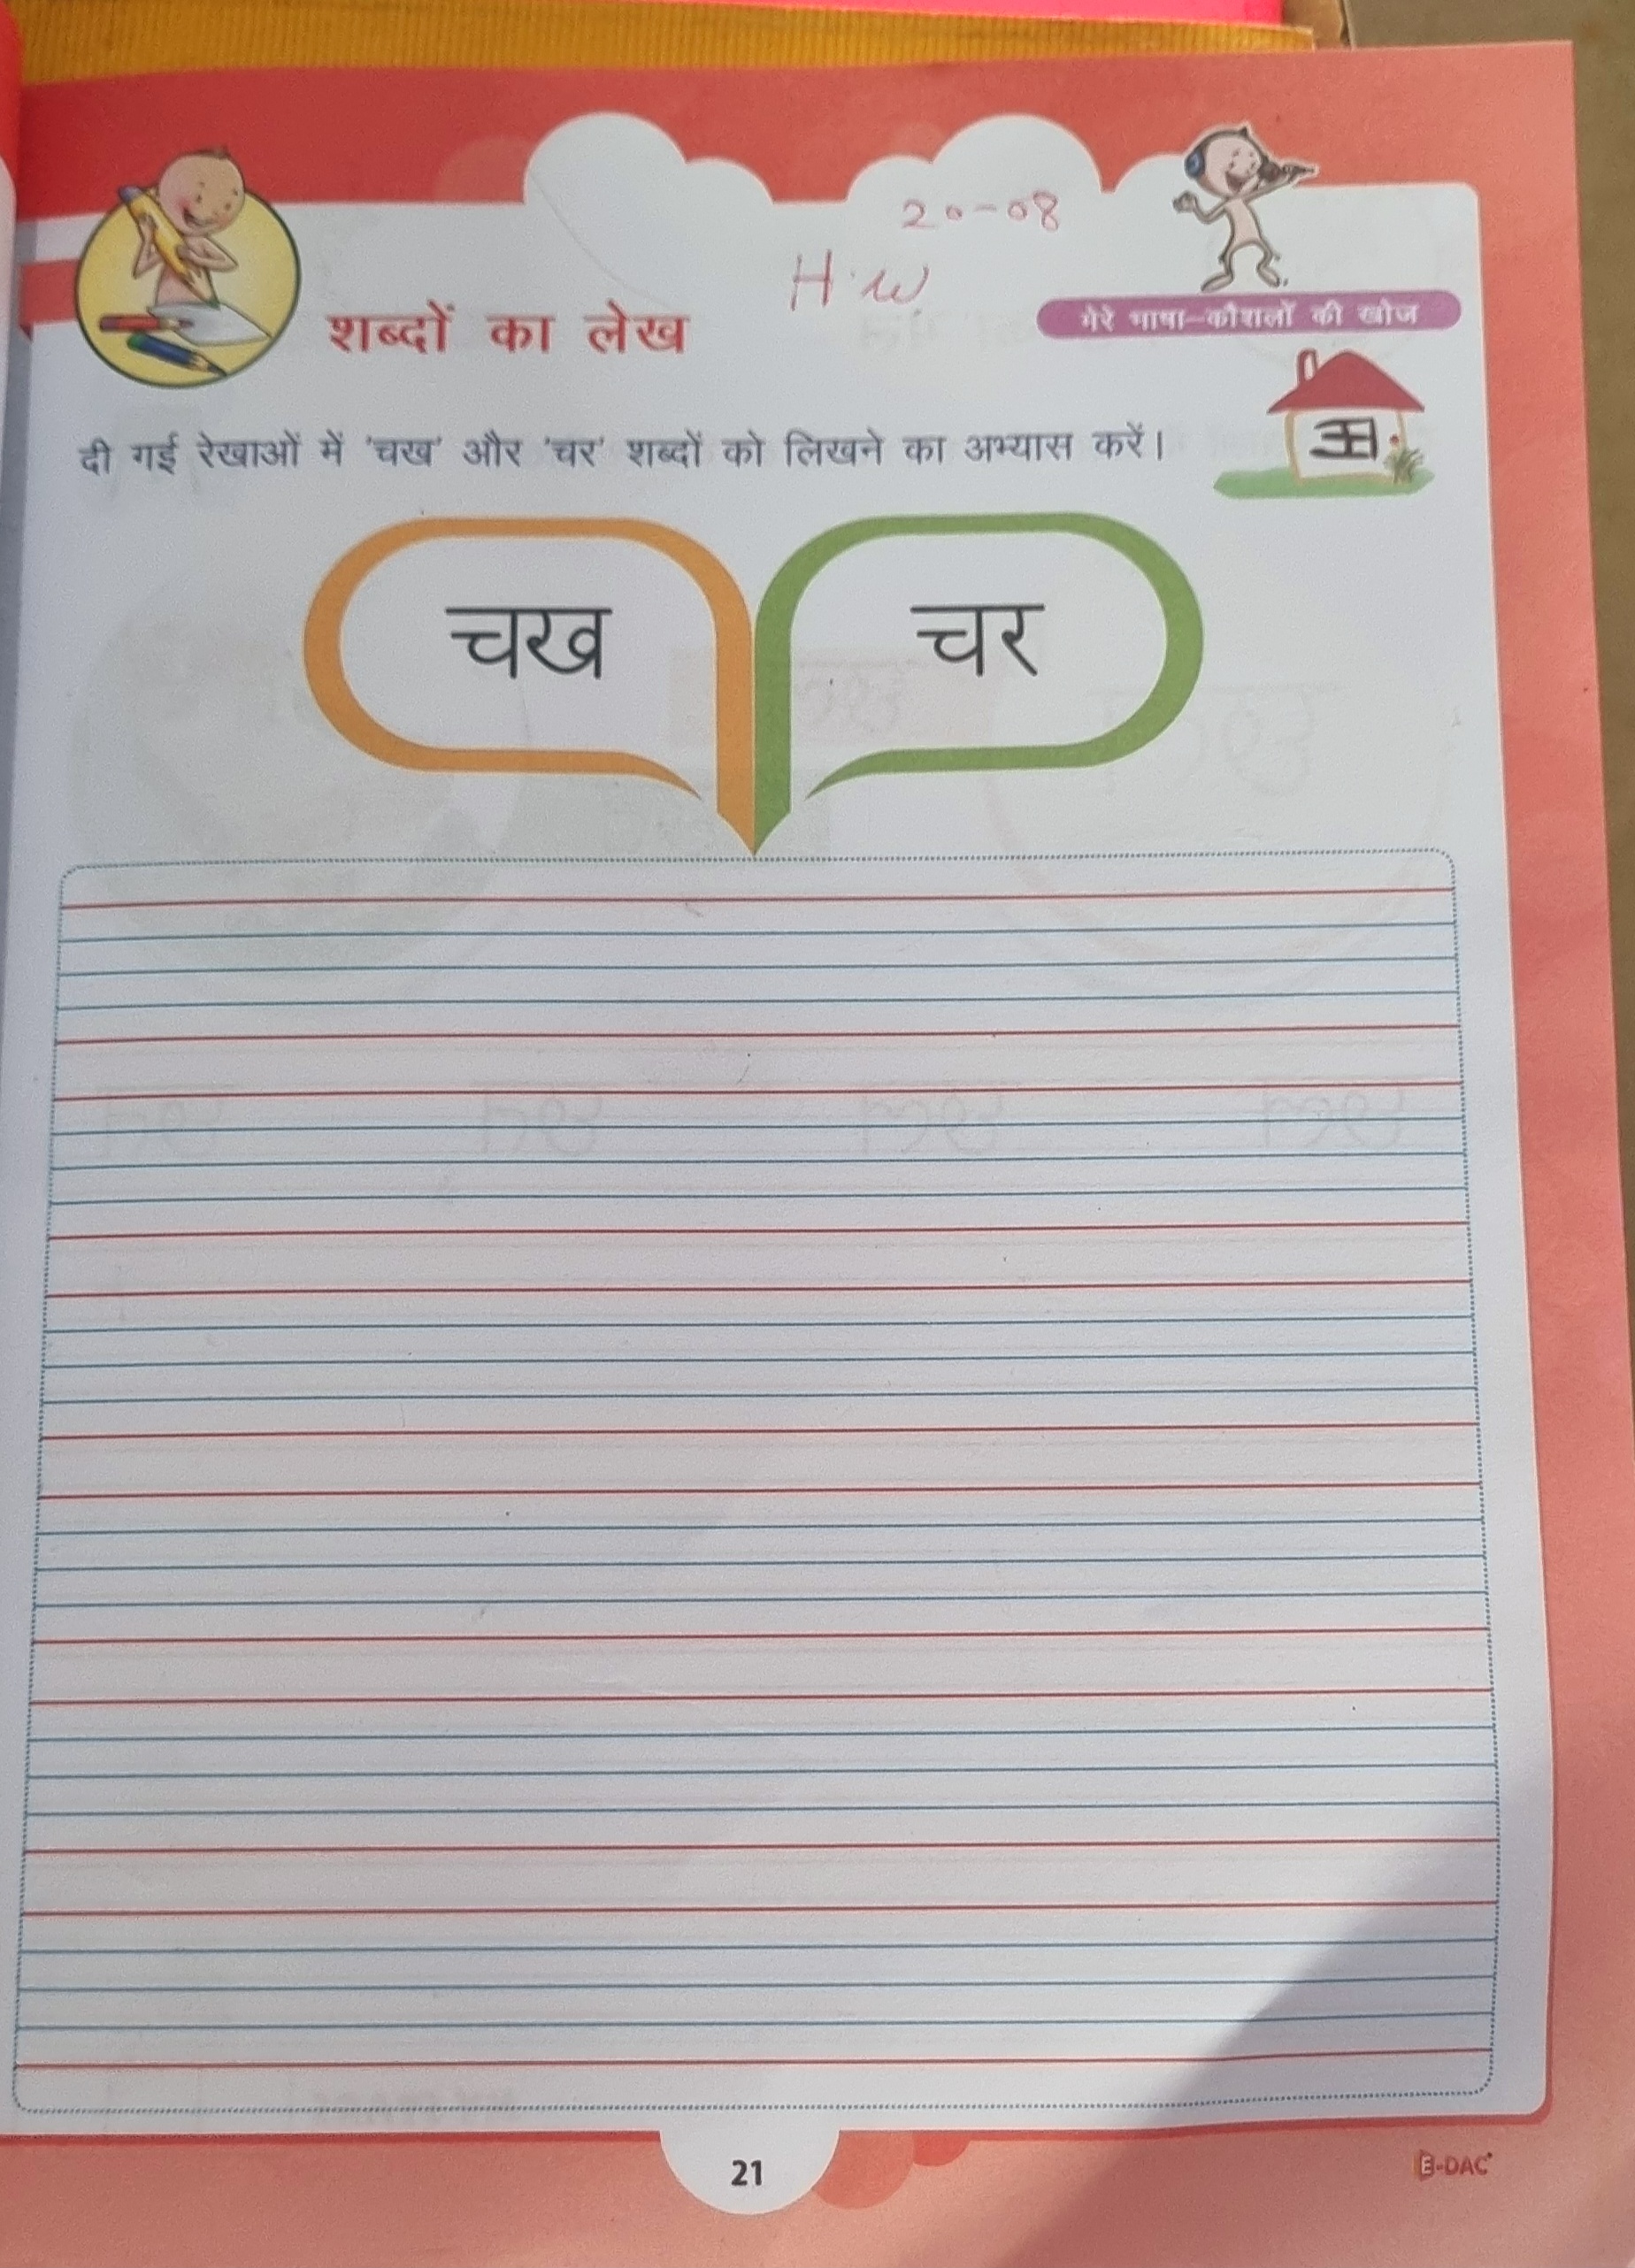 20-08
H.W
शब्दों का लेख
मेरे भाषा-कौशलों की खोज
दी गई रेखाओं में 'चख' और 'चर' शब्दों को लिखने का अभ्यास करें।
चख
चर
21
E-DAC